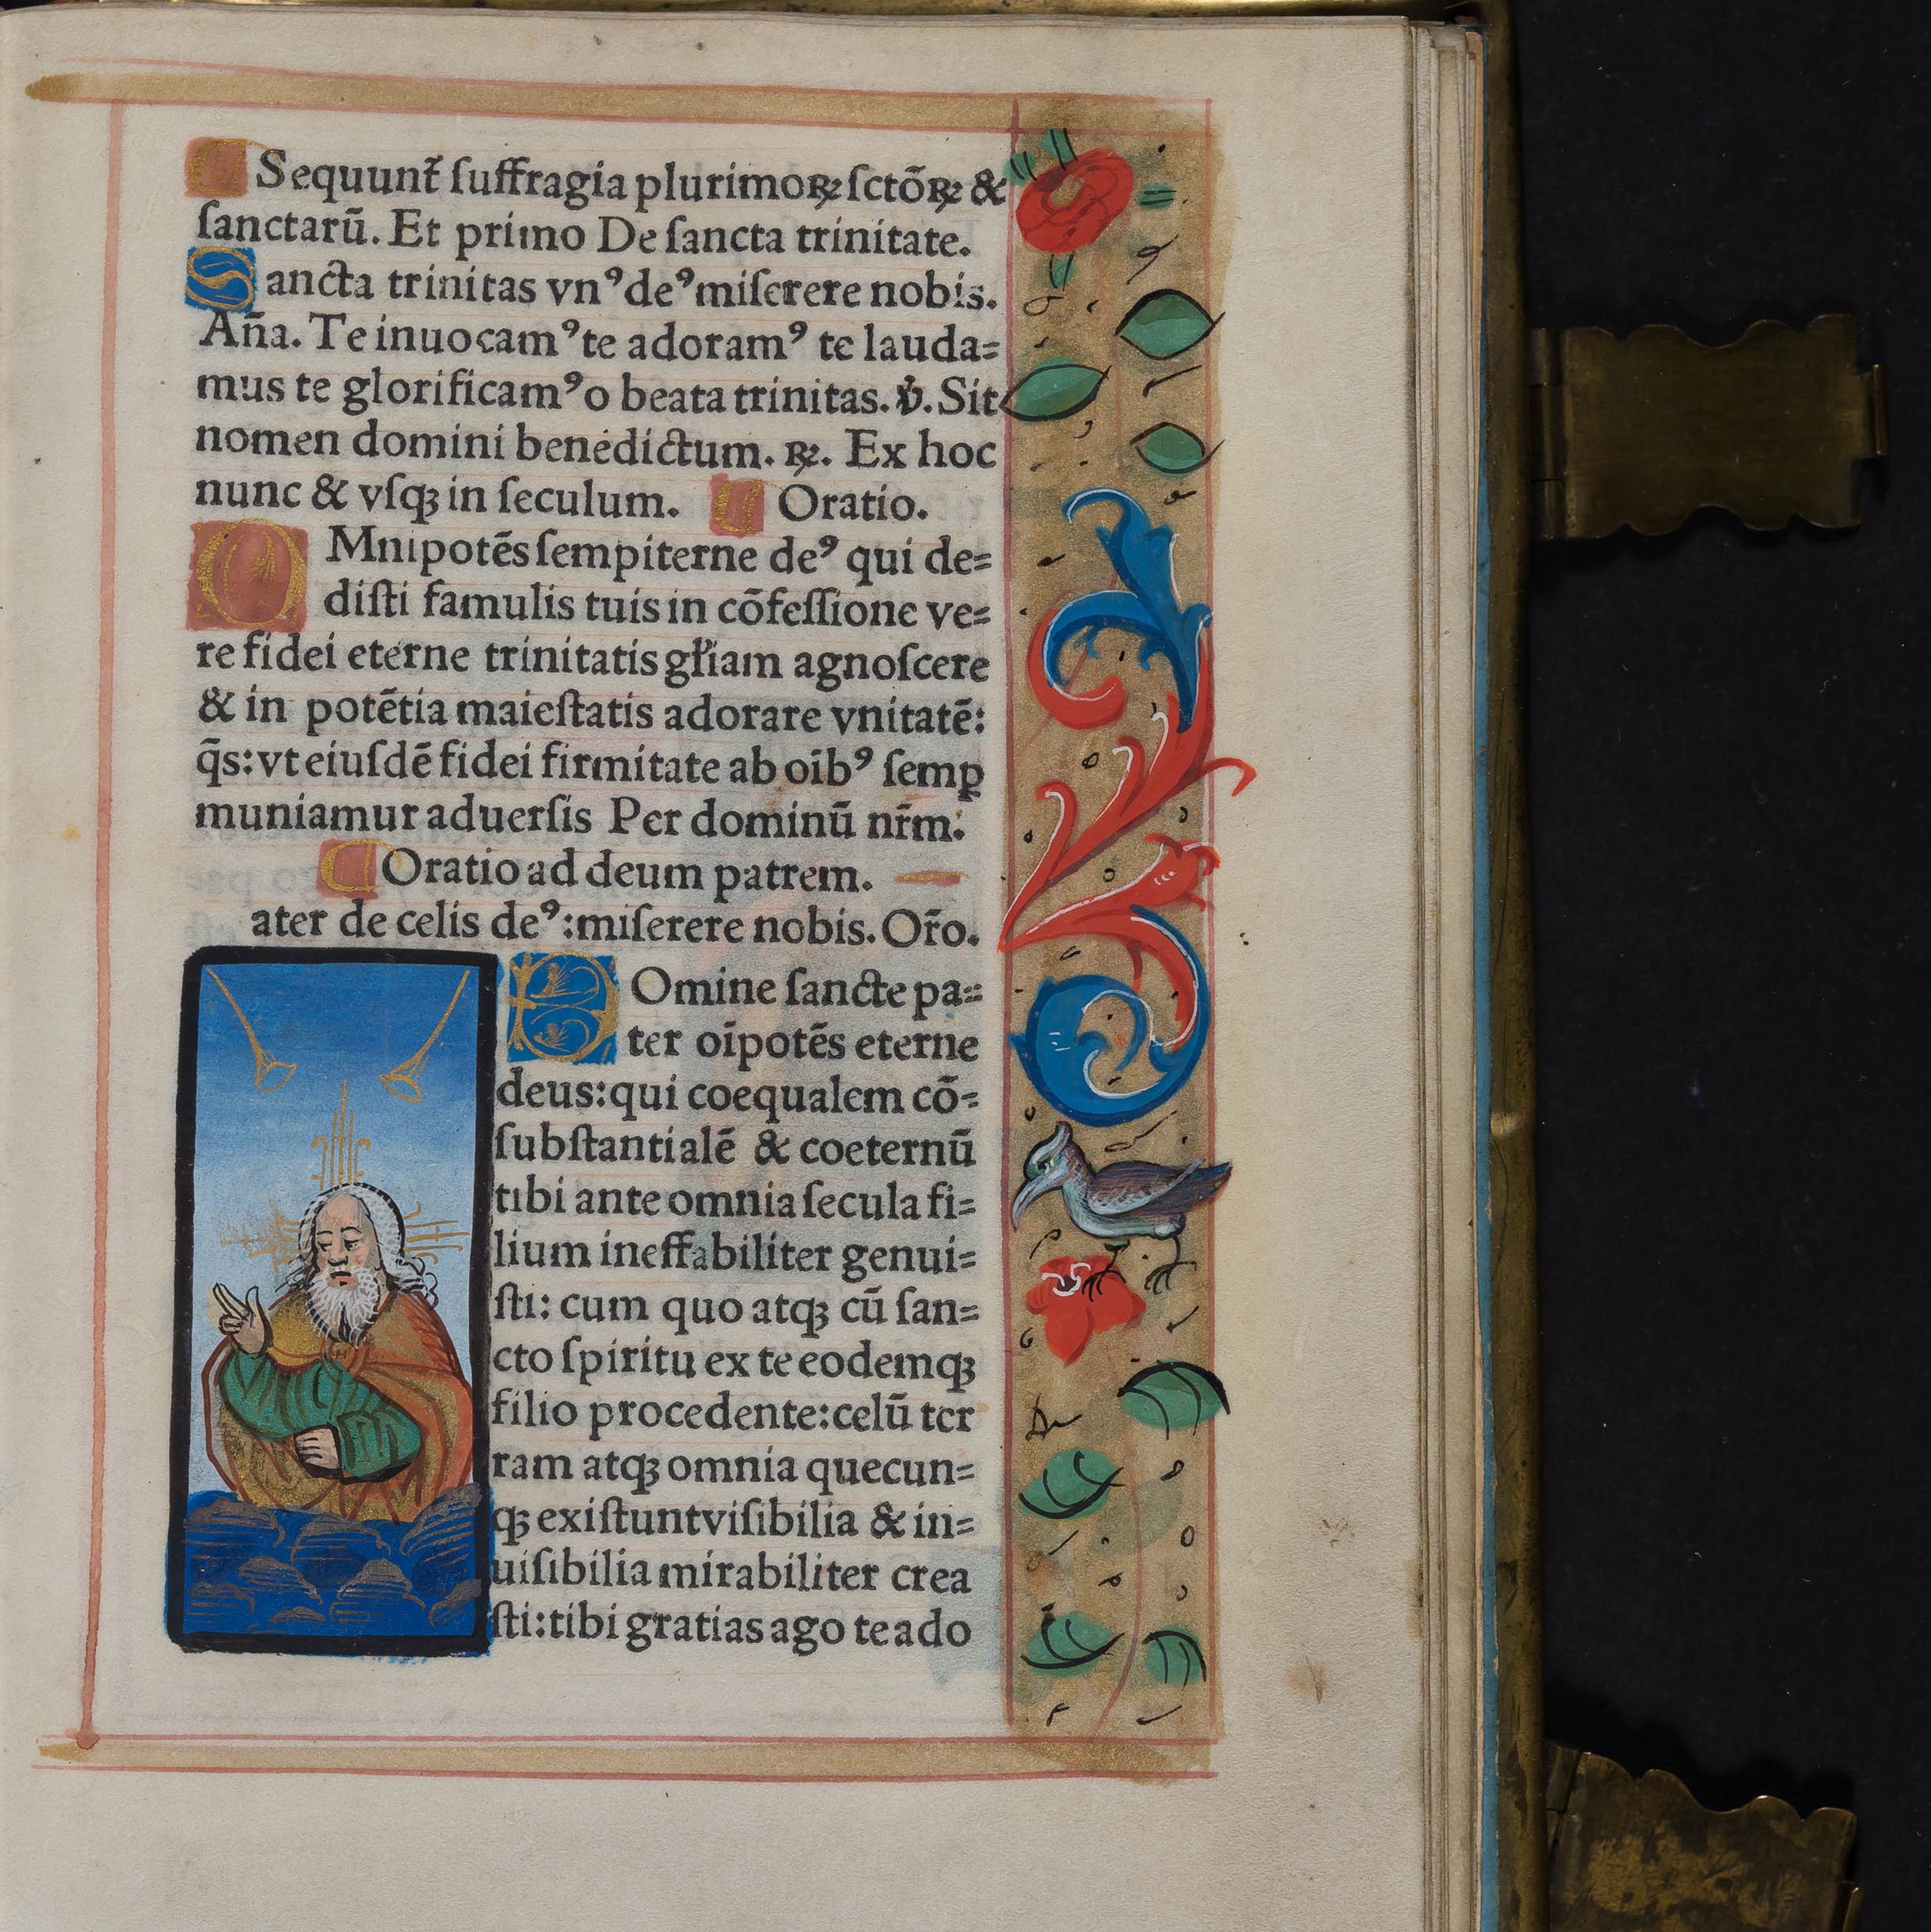 Sequunt̃ ſuffragia plurimoꝝ ſctõꝝ &
ſanctarũ. Et primo De ſancta trinitate.
Sancta trinitas vnꝰ deꝰ miſerere nobis.
Aña. Te inuocamꝰ te adoramꝰ te lauda=
mus te glorificamꝰ o beata trinitas. ℣. Sit
nomen domini benedictum. ℞. Ex hoc
nunc & vſqꝫ in ſeculum. Oratio.
OMnipotẽs ſempiterne deꝰ qui de=
diſti famulis tuis in cõfeſſione ve=
re fidei eterne trinitatis gl̃iam agnoſcere
& in potẽtia maieſtatis adorare vnitatẽ:
q̃s: vt eiuſdẽ fidei firmitate ab oĩbꝰ ſemꝑ
muniamur aduerſis Per dominũ nr̃m.
Oratio ad deum patrem.
ater de celis deꝰ: miſerere nobis. Or̃o.
DOmine ſancte pa=
ter oĩpotẽs eterne
deus: qui coequalem cõ=
ſubſtantialẽ & coeternũ
tibi ante omnia ſecula fi=
lium ineffabiliter genui=
ſti: cum quo atqꝫ cũ ſan=
cto ſpiritu ex te eodemqꝫ
filio procedente: celũ ter
ram atqꝫ omnia quecun=
qꝫ exiſtunt viſibilia & in=
uiſibilia mirabiliter crea
ſti: tibi gratias ago te ado